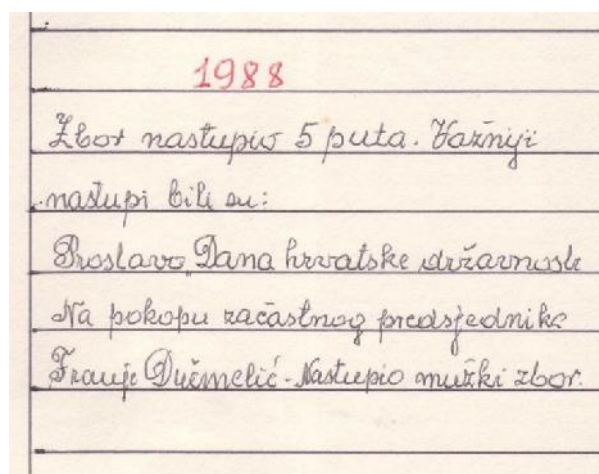 1988
Zbor nastupio 5 puta. Važniji
nastupi bili su:
Proslava Dana hrvatske državnosti
Na pokopu začastnog predsjednika
Franje Dučmelić - Nastupio mužki zbor.